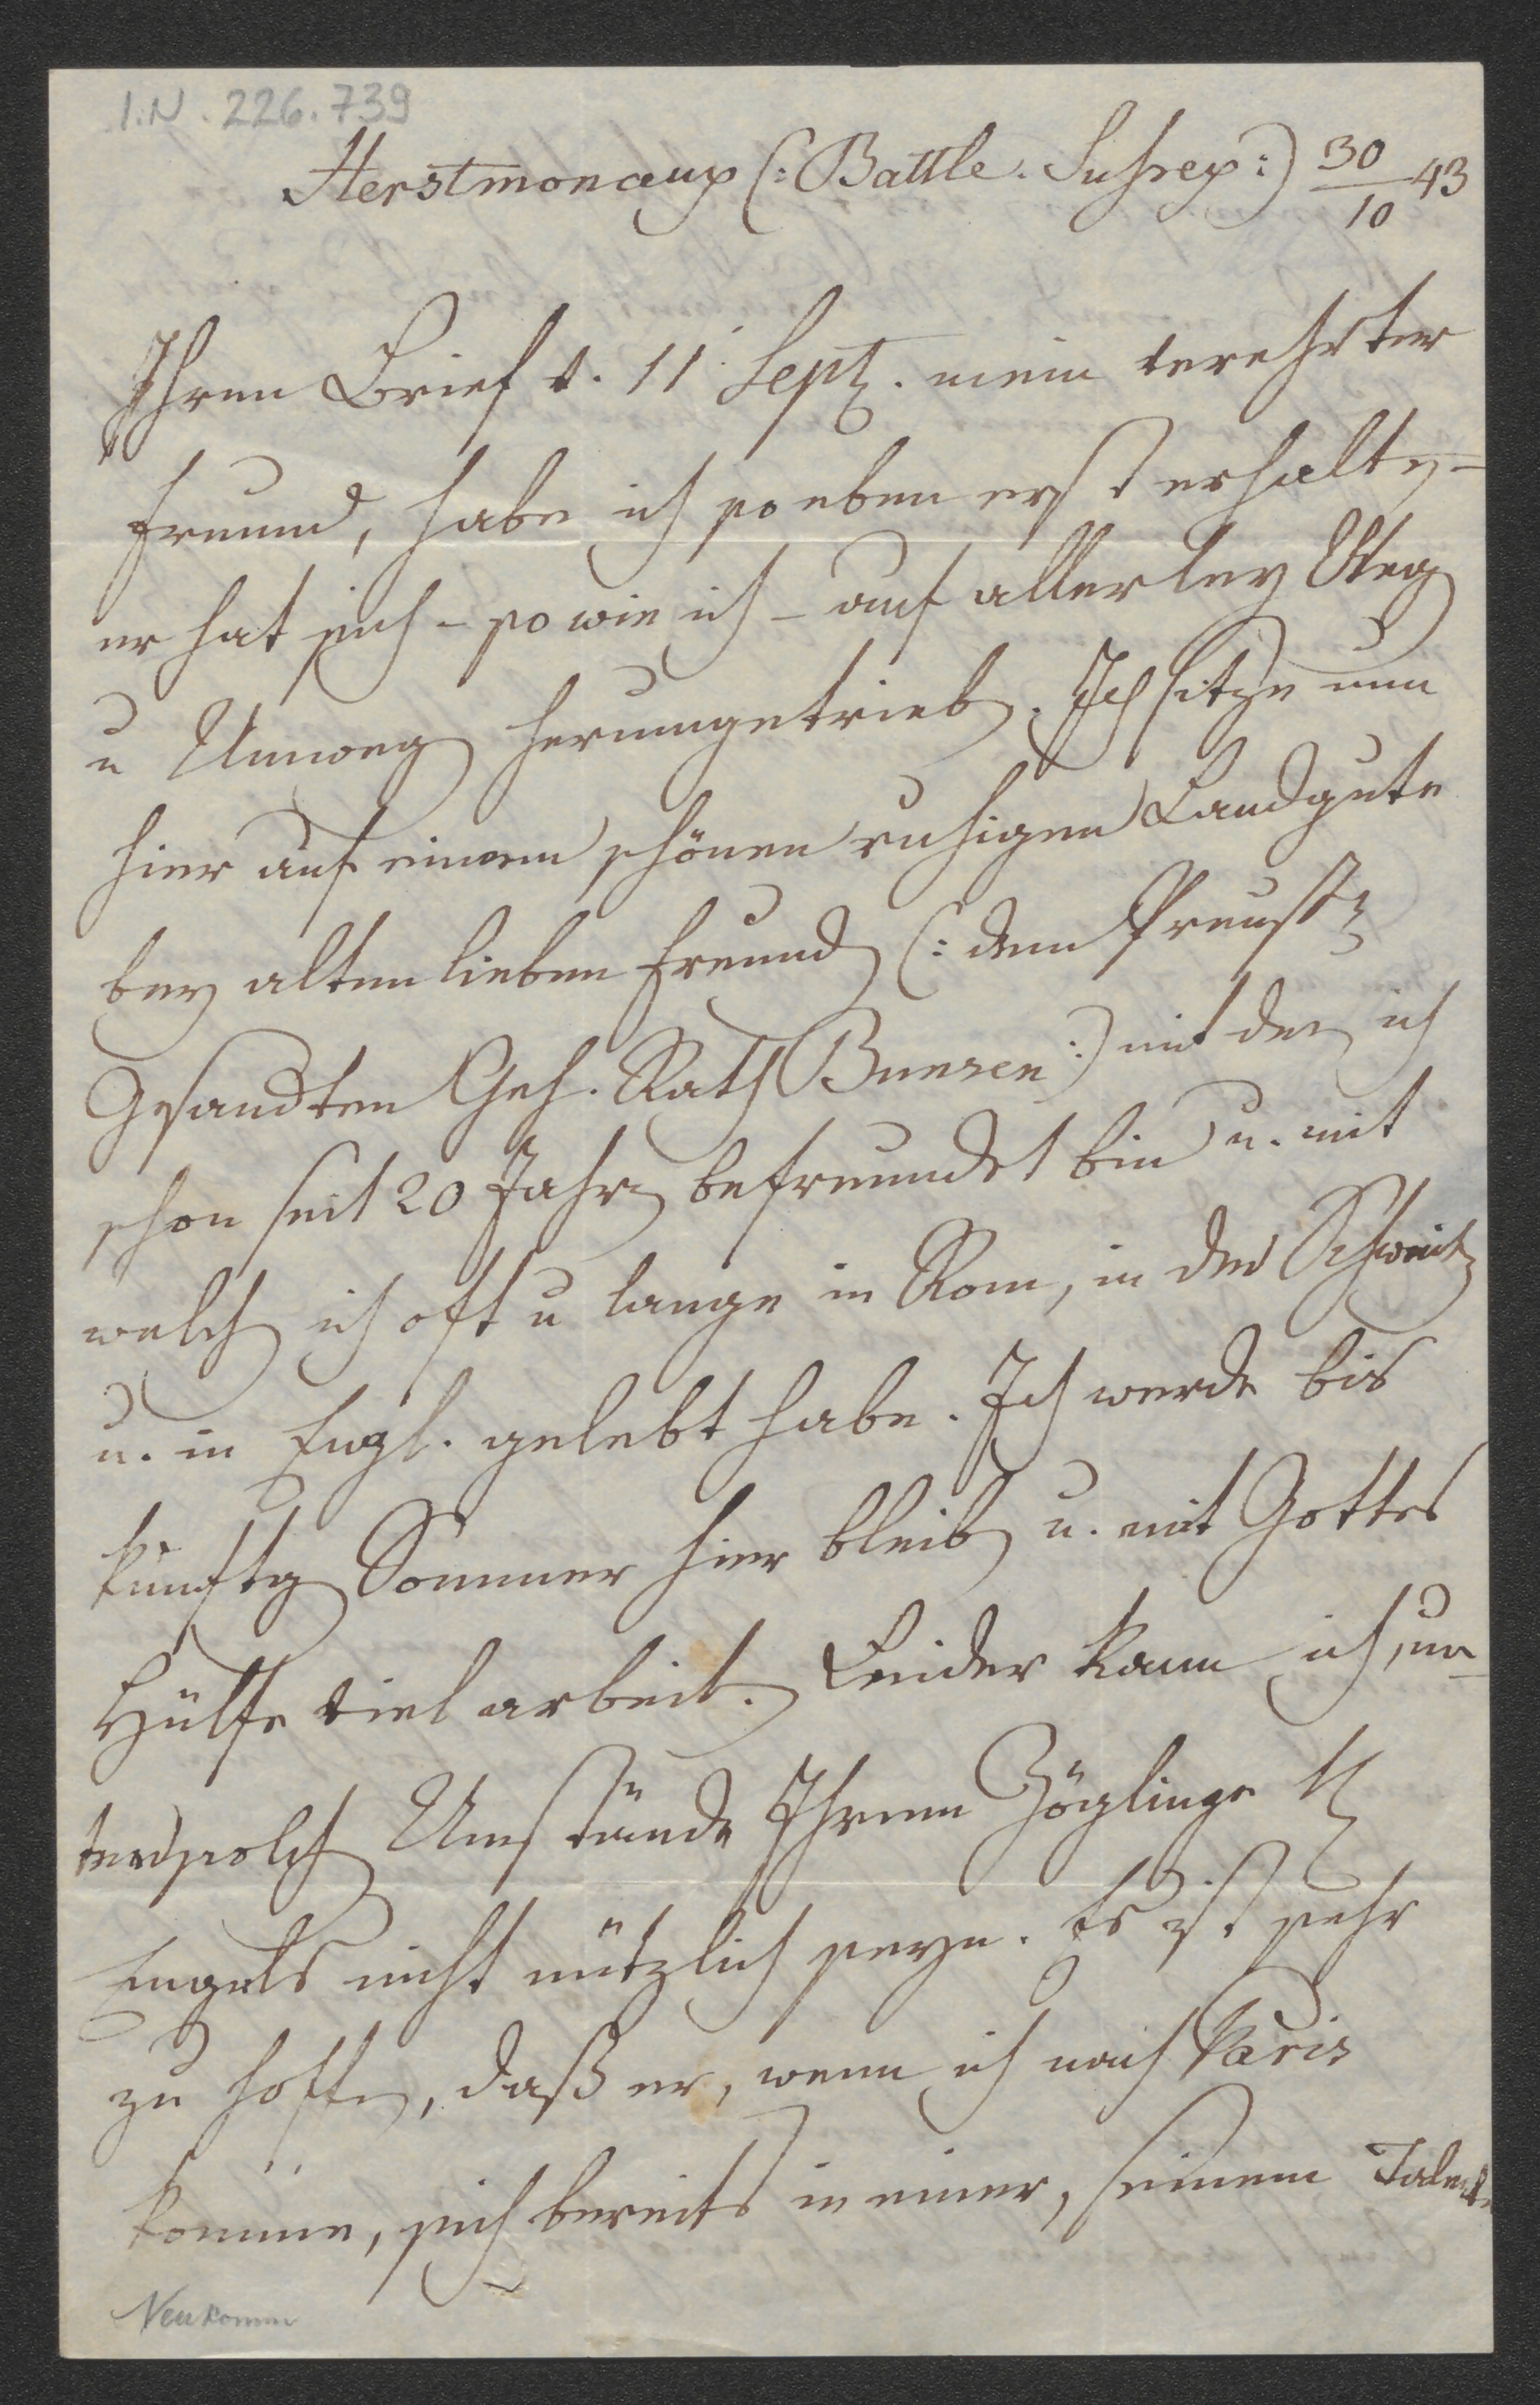 I.N. 226.739
Herstmonceux (: Battle. Sussex :) 30/10 43
Ihren Brief v. 11 Sept. mein verehrter
Freund, habe ich so eben erst erhalten –
er hat sich – so wie ich – auf allerley Weg
u Umweg herumgetrieben. Ich sitze nun
hier auf einem schönen ruhigen Landgute
bey alten lieben Freunden (: dem Preuss
Gesandten Geh. Rath Bunsen :) mit den ich
schon seit 20 Jahren befreundet bin u. mit
welchen ich oft u lange in Rom, in der Schweitz
u. in Engl. gelebt habe. Ich werde bis
künftgen Sommer hier bleiben u. mit Gottes
Hülfe viel arbeiten. Leider kann ich, un-
ter solchen Umständen Ihrem Zöglinge
Engels nicht nützlich seyn. Es ist sehr
zu hoffen, daß er, wenn ich nach Paris
komme, sich bereits in einer, seinem Talente
Neukomm